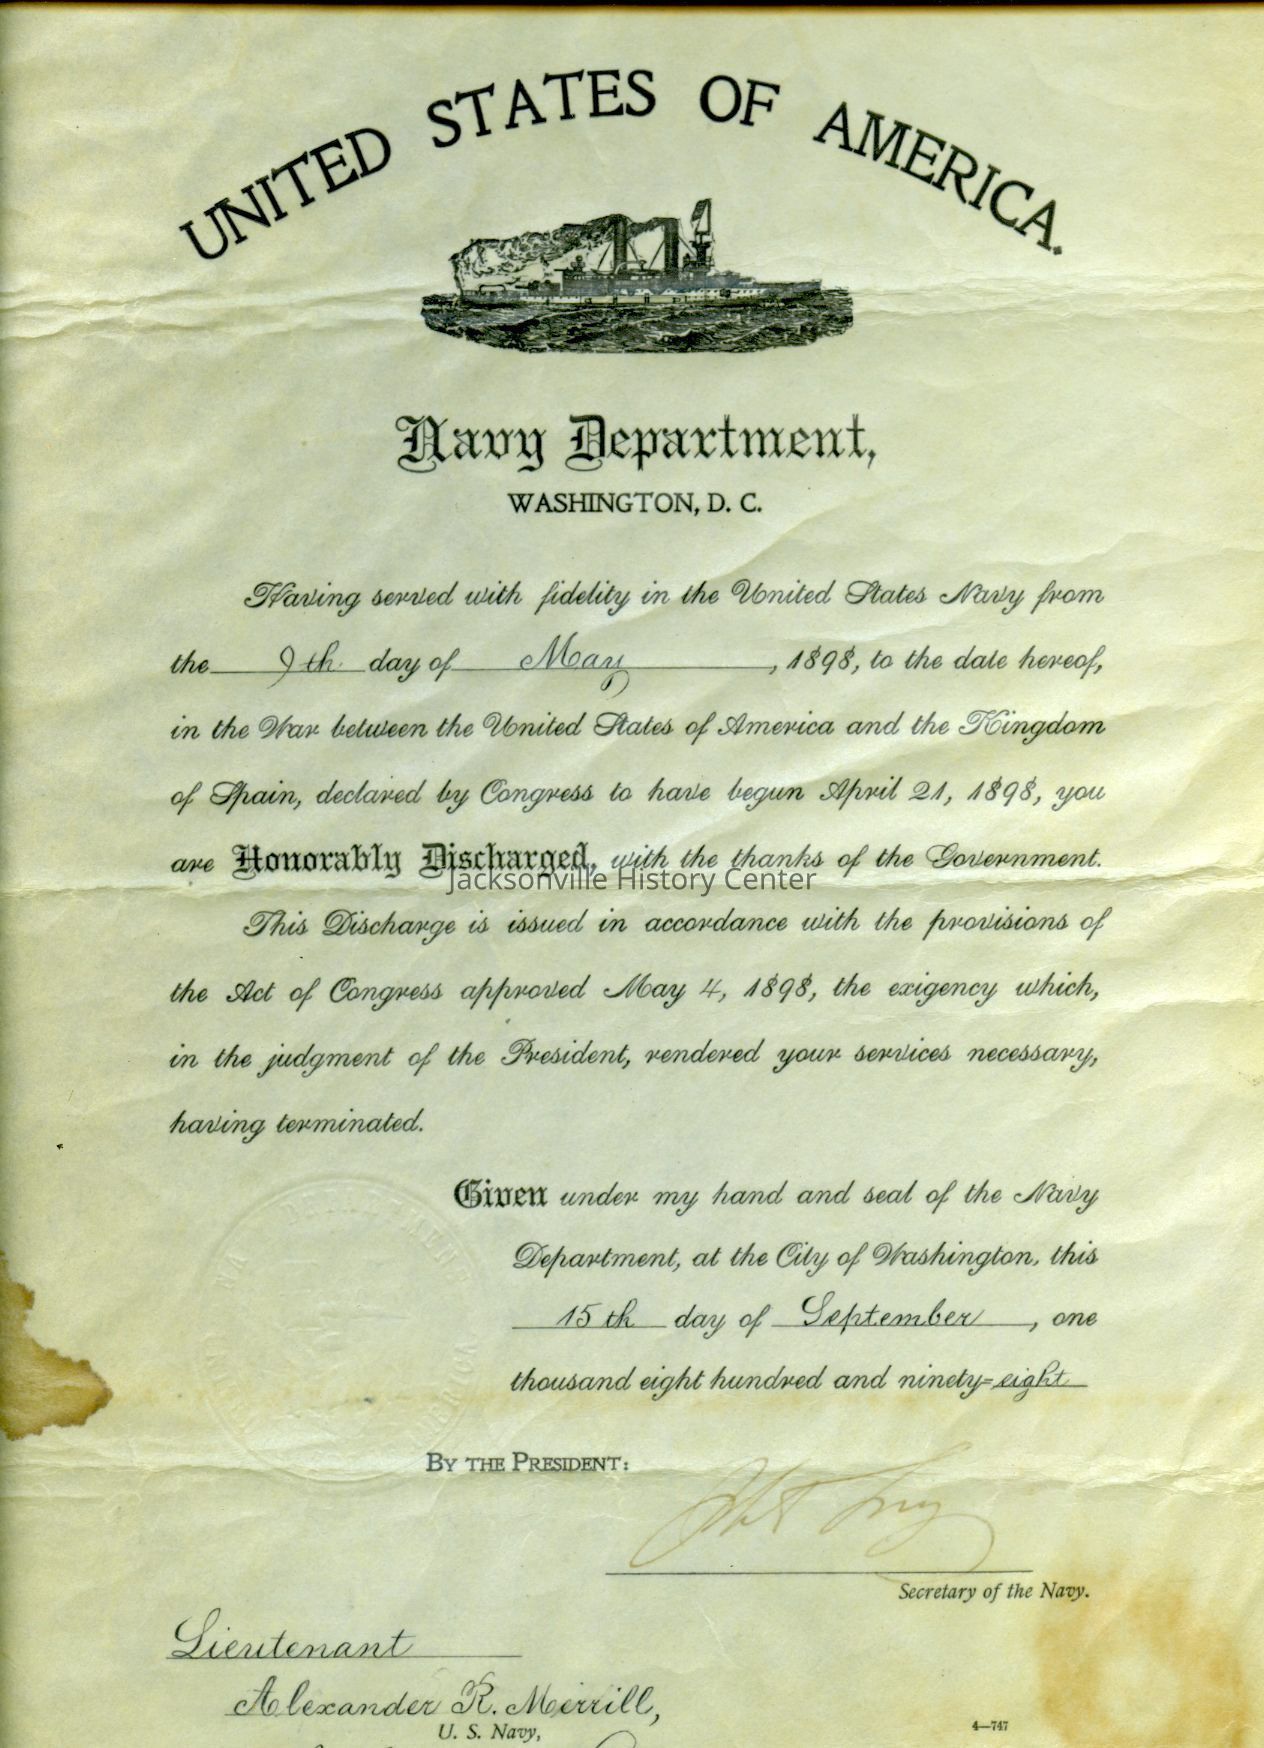 UNITED STATES OF AMERICA.
Navy Department,
WASHINGTON, D. C.
Having served with fidelity in the United States Navy from
the 9th. day of May, 1898, to the date hereof,
in the War between the United States of America and the Kingdom
of Spain, declared by Congress to have begun April 21, 1898, you
are Honorably Discharged, with the thanks of the Government.
Jacksonville History Center
This Discharge is issued in accordance with the provisions of
the Act of Congress approved May 4, 1898, the exigency which,
in the judgment of the President, rendered your services necessary,
having terminated.
Given under my hand and seal of the Navy
Department, at the City of Washington, this
15th day of September, one
thousand eight hundred and ninety=eight
BY THE PRESIDENT:
Secretary of the Navy.
Lieutenant
Alexander R. Merrill,
U. S. Navy,
4—747